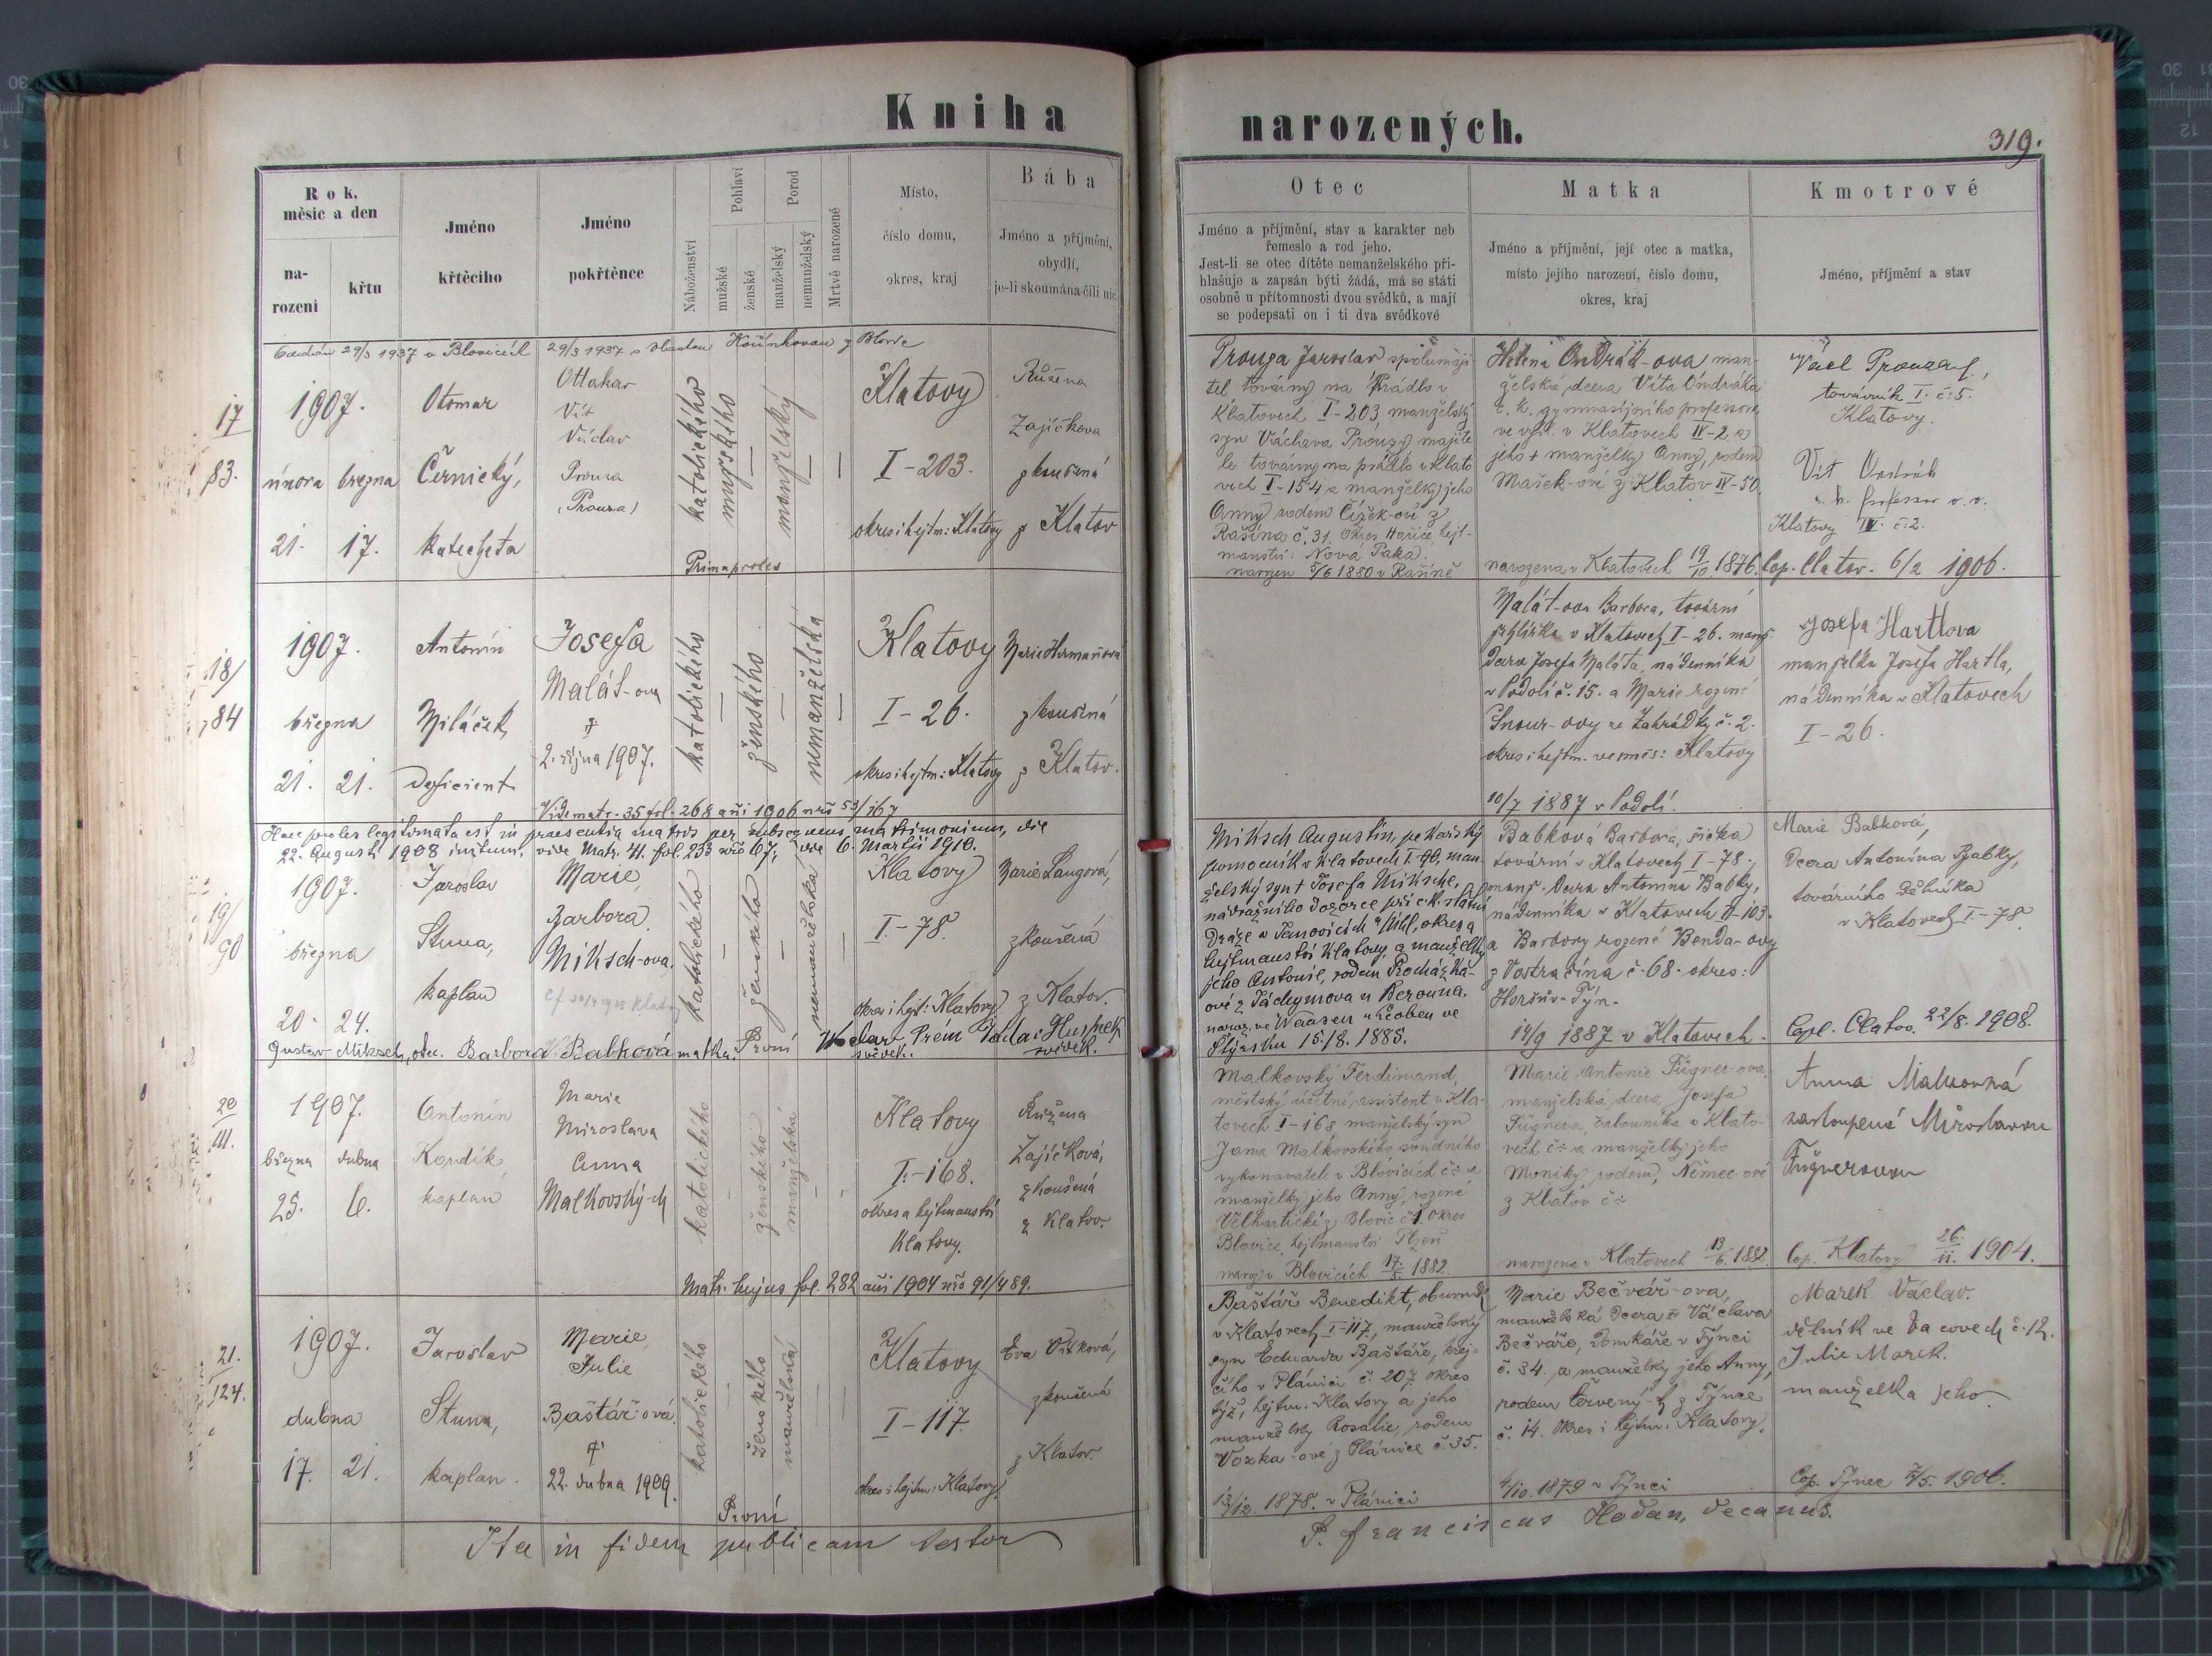 Kniha narozených.
319.
Rok, měsíc a den
narození
křtu
Jméno křtěcího
Jméno pokřtěnce
Náboženství
Pohlaví
mužské
ženské
Porod
manželský
nemanželský
Mrtvě narozené
Místo,
číslo domu,
okres, kraj
Bába
Jméno a příjmění,
obydlí,
je-li skoumána čili nic
Otec
Jméno a příjmění, stav a karakter neb
řemeslo a rod jeho.
Jest-li se otec dítěte nemanželského při-
hlašuje a zapsán býti žádá, má se státi
osobně u přítomnosti dvou svědků, a mají
se podepsati on i ti dva svědkové
Matka
Jméno a příjmění, její otec a matka,
místo jejího narození, číslo domu,
okres, kraj
Kmotrové
Jméno, příjmění a stav
29/3 1937 v Blovicích 29/3 1937 s
17
83.
1907.
února března
21. 17.
Otomar
Černický,
katecheta
Ottakar
Vít
Václav
Prouza
(Prouza)
katolického
mužského
manželský
Primaproles
Klatovy
I-203.
okres i hejtm: Klatovy
Růžena
Zajíčkova
zkoušená
z Klatov
Prouza Jaroslav spolumaji
tel továrny na prádlo v
Klatovech I-203, manželský
syn Václava Prouzy, majite
le továrny na prádlo v Klato
vech I-154 a manželky jeho
Anny rodem Čížek-ové z
Rašína č. 31. Okres Hořice, hejt-
manství: Nová Paka.
narozen 5/6 1880 v Rašíně
Helena Ondrák-ova man-
želská dcera Víta Ondráka
c. k. gymnasijního professora
ve výsl. v Klatovech IV-2, a
jeho + manželky Anny, rodem
Mašek-ové z Klatov IV-50.
narozena v Klatovech 19/10 1876.
Václ Prouza
továrník I. č. 5.
Klatovy.
Vít Ondrák
c. k. professor v. v.
Klatovy IV. č. 2.
Cop. Clatov. 6/2 1906.
18/
84
1907.
března
21. 21.
Antonín
Miláček,
deficient
Josefa
Malát-ova
2. října 1907.
katolického
ženského
nemanželská
Vide matr. 35 fol. 268 ani 1906 nro 53/167
Klatovy
I-26.
okres i hejtm: Klatovy
Marie Hermanová
zkoušená
z Klatov.
Malát-ova Barbora, tovární
v Klatovech I-26. manž.
dcera Josefa Maláta, nádenníka
v Podolí č. 15. a Marie rozené
ze Zahrádky č. 2.
okres i hejtm. veměs: Klatovy
10/7 1887 v Podolí.
Josefa Hartlova
manželka Josefa Hartla,
nádenníka v Klatovech
I-26.
Haec proles legitimata est in praesentia matris per subsequens matrimonium, die
22. Augusti 1908 initum, vide Matr. 41. fol. 233 nro 67, die 6. Martii 1910.
19/
90
1907.
března
20. 24.
Jaroslav
Stuna,
kaplan
Marie,
Barbora
Miksch-ova.
katolického
ženského
nemanželská
První
Klatovy
I.-78.
okres i hejt: Klatovy
Marie Langová,
zkoušená
z Klatov.
Gustav Miksch, otec. Barbora Babková matka.
svědek. svědek.
Miksch Augustin, pekařský
pomocník v Klatovech I. 90, man-
želský syn + Josefa Miksche,
nádražního dozorce při c. k. státní
dráze v Janovicích, okres a
hejtmanství Klatovy, a manželky
jeho Antonie, rodem Procházka-
ové z Táchymova u Berouna.
naroz. ve Waasen u Leoben ve
Štýrsku 15/8. 1885.
Babková Barbora, šička
tovární v Klatovech I-78.
manž. dcera Antonína Babky,
nádenníka v Klatovech II-103.
a Barbory rozené Benda-ovy
z Vostračína č. 68. okres:
Horšův-Týn.
14/9 1887 v Klatovech.
Marie Babková,
dcera Antonína Babky,
továrního dělníka
v Klatovech I-78.
Copl. Clatov. 22/8. 1908.
20
III.
1907.
března dubna
25. 6.
Antonín
Kordík,
kaplan
Marie
Miroslava
Anna
Malkovský-ch
katolického
ženského
manželská
Matr. hujus fol. 282 ani 1904 nro 91/489.
Klatovy
I.-168.
okres a hejtmanství
Klatovy.
Růžena
Zajíčková,
zkoušená
z Klatov.
Malkovský Ferdinand,
městský účetní assistent v Kla-
tovech I-168 manželský syn
Jana Malkovského soudního
vykonavatele v Blovicích č: a
manželky jeho Anny, rozené
z Blovic č 1. okres
Blovice, hejtmanství Plzeň
naroz. v Blovicích 17/5 1882
Marie Antonie Fügner-ova,
manželská dcera Josefa
Fügnera, čalouníka v Klato-
vech č: a manželky jeho
Moniky, rodem, Němec-ové
z Klatov č:
narozena v Klatovech 13/6. 1882.
Anna Malkovská
zastoupená Miroslavou
Fügnerovou
Cop. Klatovy 26/II. 1904.
21.
124.
1907.
dubna
17. 21.
Jaroslav
Stuna,
kaplan.
Marie,
Julie
Baštář-ová.
22. dubna 1909.
katolického
ženského
manželská
První
Klatovy
I-117.
okres i hejtm: Klatovy.
Eva Vítková,
zkoušená
z Klatov.
Baštář Benedikt, obuvník
v Klatovech I-117, manželský
syn Eduarda Baštáře, krej-
čího v Plánici č. 207. okres
týž, hejtm: Klatovy a jeho
manželky Rosalie, rodem
Vozka-ové z Plánice č. 35.
13/12. 1878. v Plánici
Marie Bečvář-ova,
manželská dcera Václava
Bečváře, domkáře v Týnci
č. 34. a manželky jeho Anny,
rodem Červený-ch z Týnce
č. 14. okres i hejtm: Klatovy.
4/10. 1879 v Týnci
Marek Václav.
dělník ve Dacovech č. 12.
Julie Marek.
manželka jeho.
Cop. Týnec 7/5. 1906.
Ita in fidem publicam testor P. Franciscus Hodan, decanus.